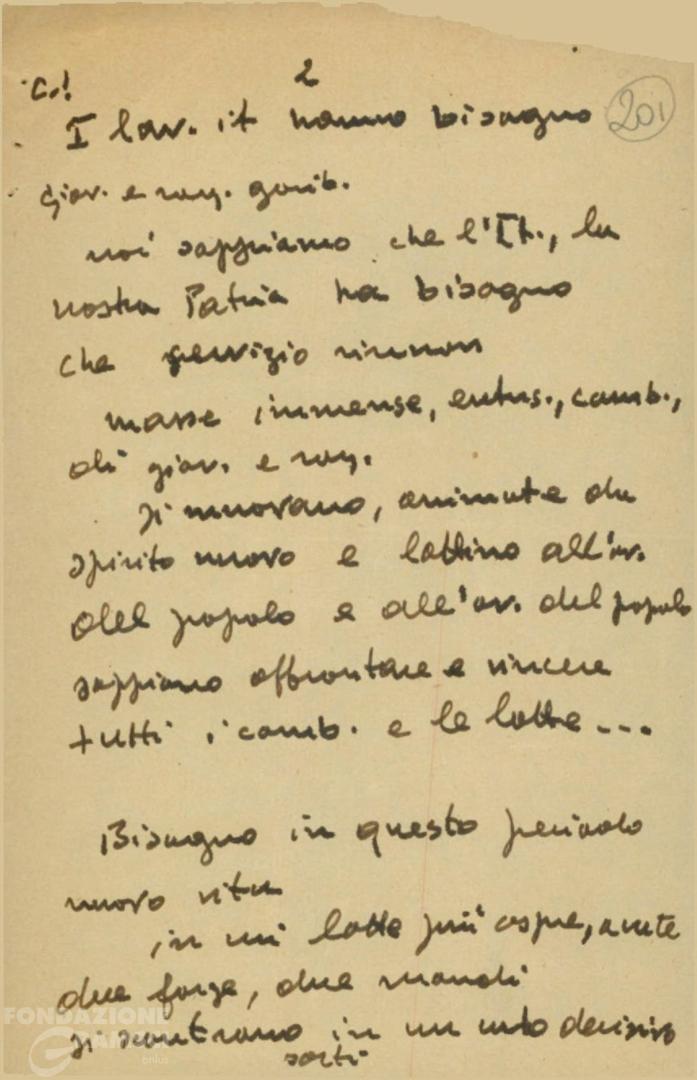 2
C.!
201
I lav. it hanno bisogno
giov. e rag. garib.
noi sappiamo che l'It., la
nostra Patria ha bisogno
che servizio
masse immense, entus., comb.,
di giov. e rag.
si muovano, animate da
spirito nuovo e lottino all'av.
del popolo e all'av. del popolo
sappiano affrontare e vincere
tutti i comb. e le lotte...
Bisogno in questo periodo
nuovo vita
in cui lotte più aspre, acute
due forze, due mondi
si scontrano in un urto decisivo
sorti
FONDAZIONE
GRAMSCI
onlus